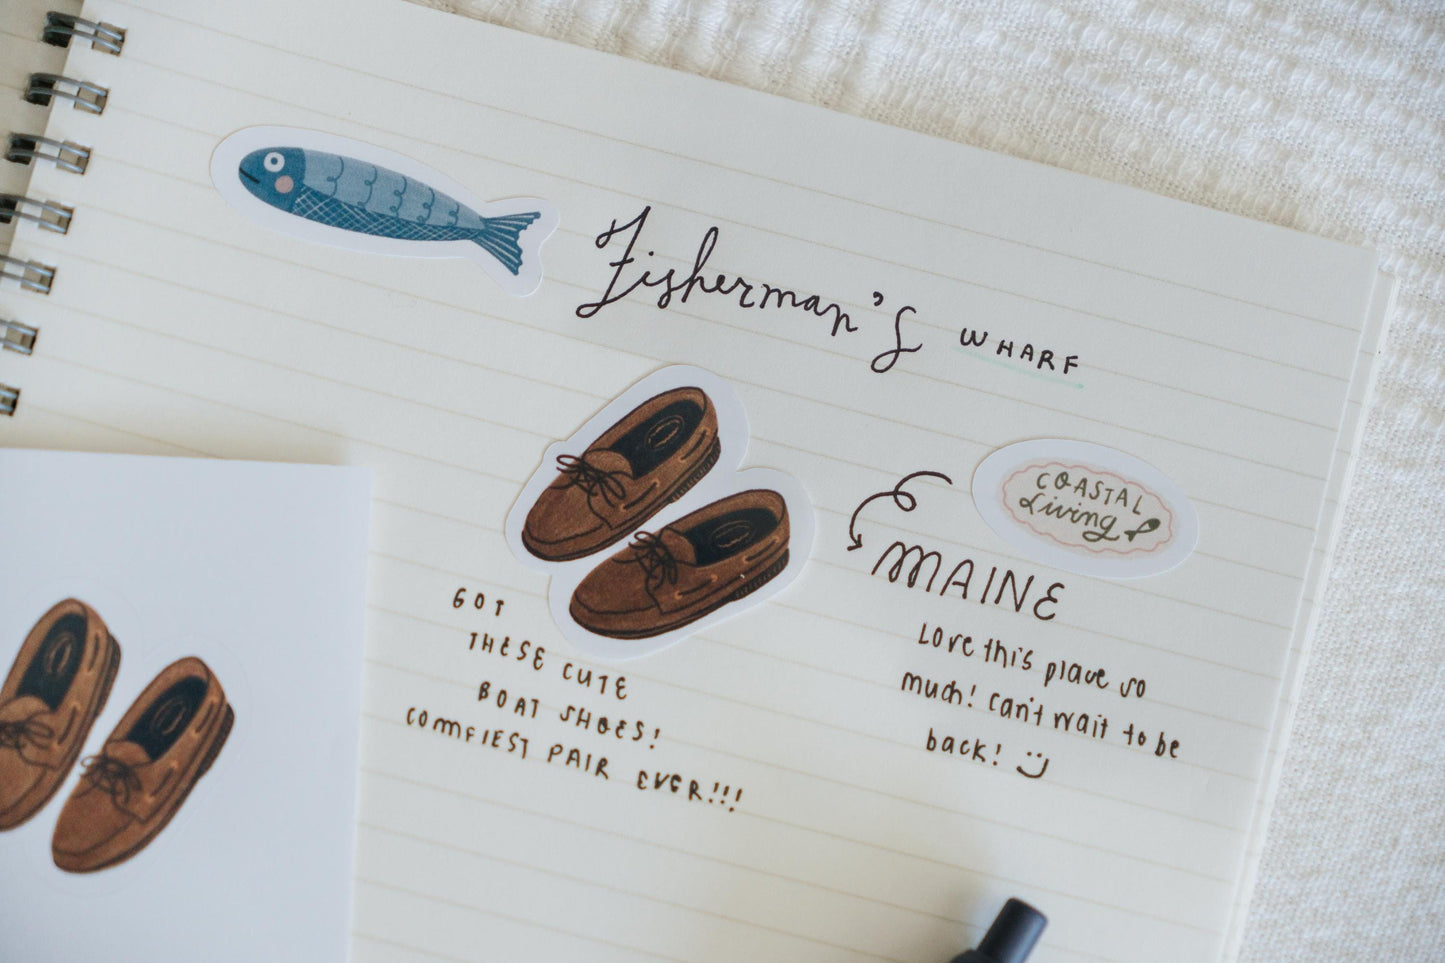 Fisherman's WHARF
COASTAL
Living
MAINE
GOT
THESE CUTE
BOAT SHOES!
COMFIEST PAIR EVER!!!
Love this place so
much! Can't wait to be
back!